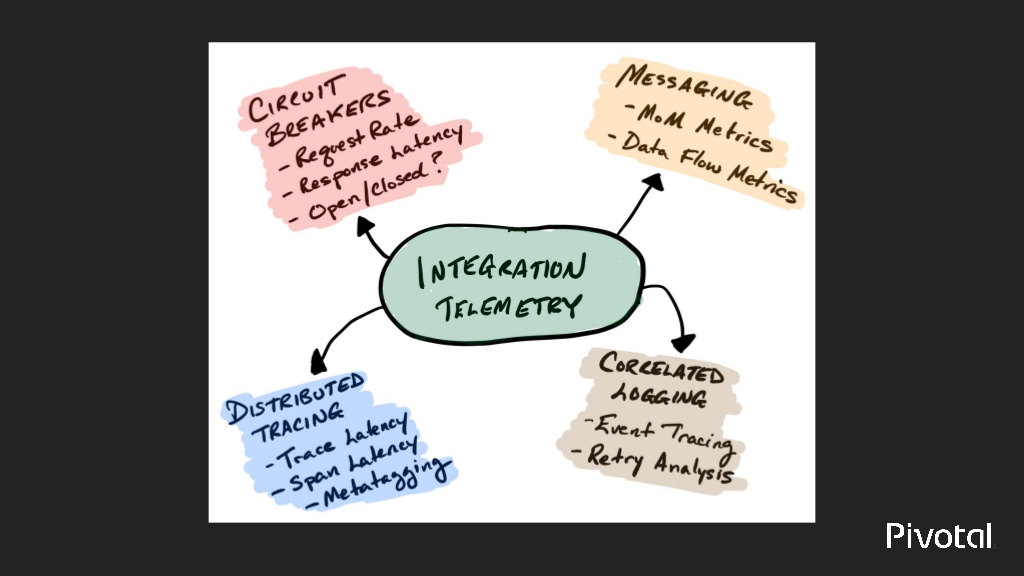 CIRCUIT
BREAKERS
- Request Rate
- Response Latency
- Open/Closed?
MESSAGING
- MoM Metrics
- Data Flow Metrics
INTEGRATION
TELEMETRY
DISTRIBUTED
TRACING
- Trace Latency
- Span Latency
- Metatagging
CORRELATED
LOGGING
- Event Tracing
- Retry Analysis
Pivotal